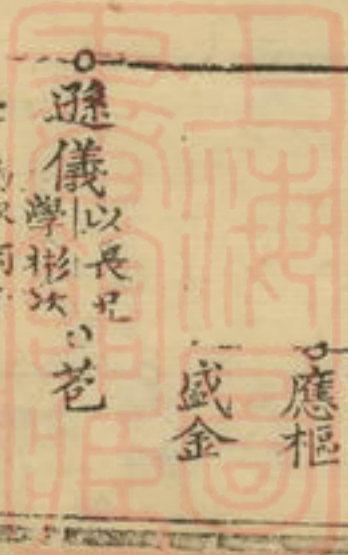 應樞
盛金
遜儀
以長兄
學彬次
苍